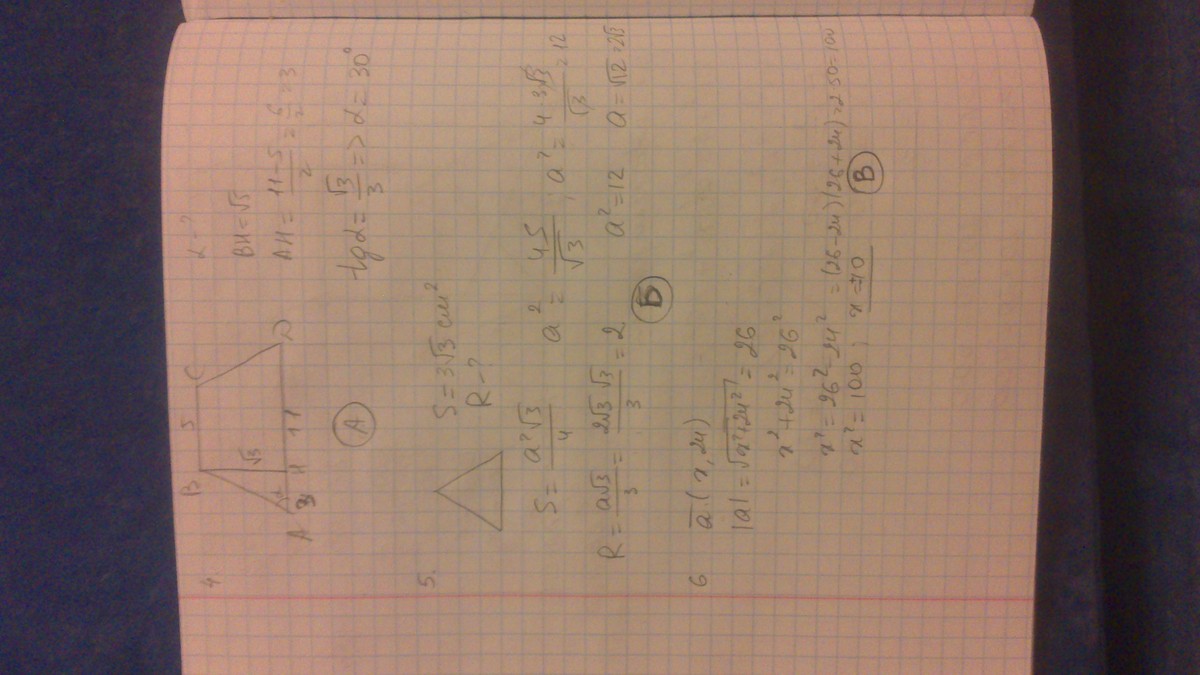 4.
B 5 C
√3
A 3 α H 11 D
α - ?
BH = √3
AH = (11-5)/2 = 6/2 = 3
tgα = √3/3 => α = 30°
А
5.
S = 3√3 см²
R - ?
S = a²√3/4
a² = 4S/√3; a² = 4·3√3/√3 = 12
R = a√3/3 = 2√3·√3/3 = 2
a² = 12 a = √12 = 2√3
Б
6 a(x, 24)
|a| = √(x²+24²) = 26
x² + 24² = 26²
x² = 26² - 24² = (26-24)(26+24) = 2·50 = 100
x² = 100; x = 10
В